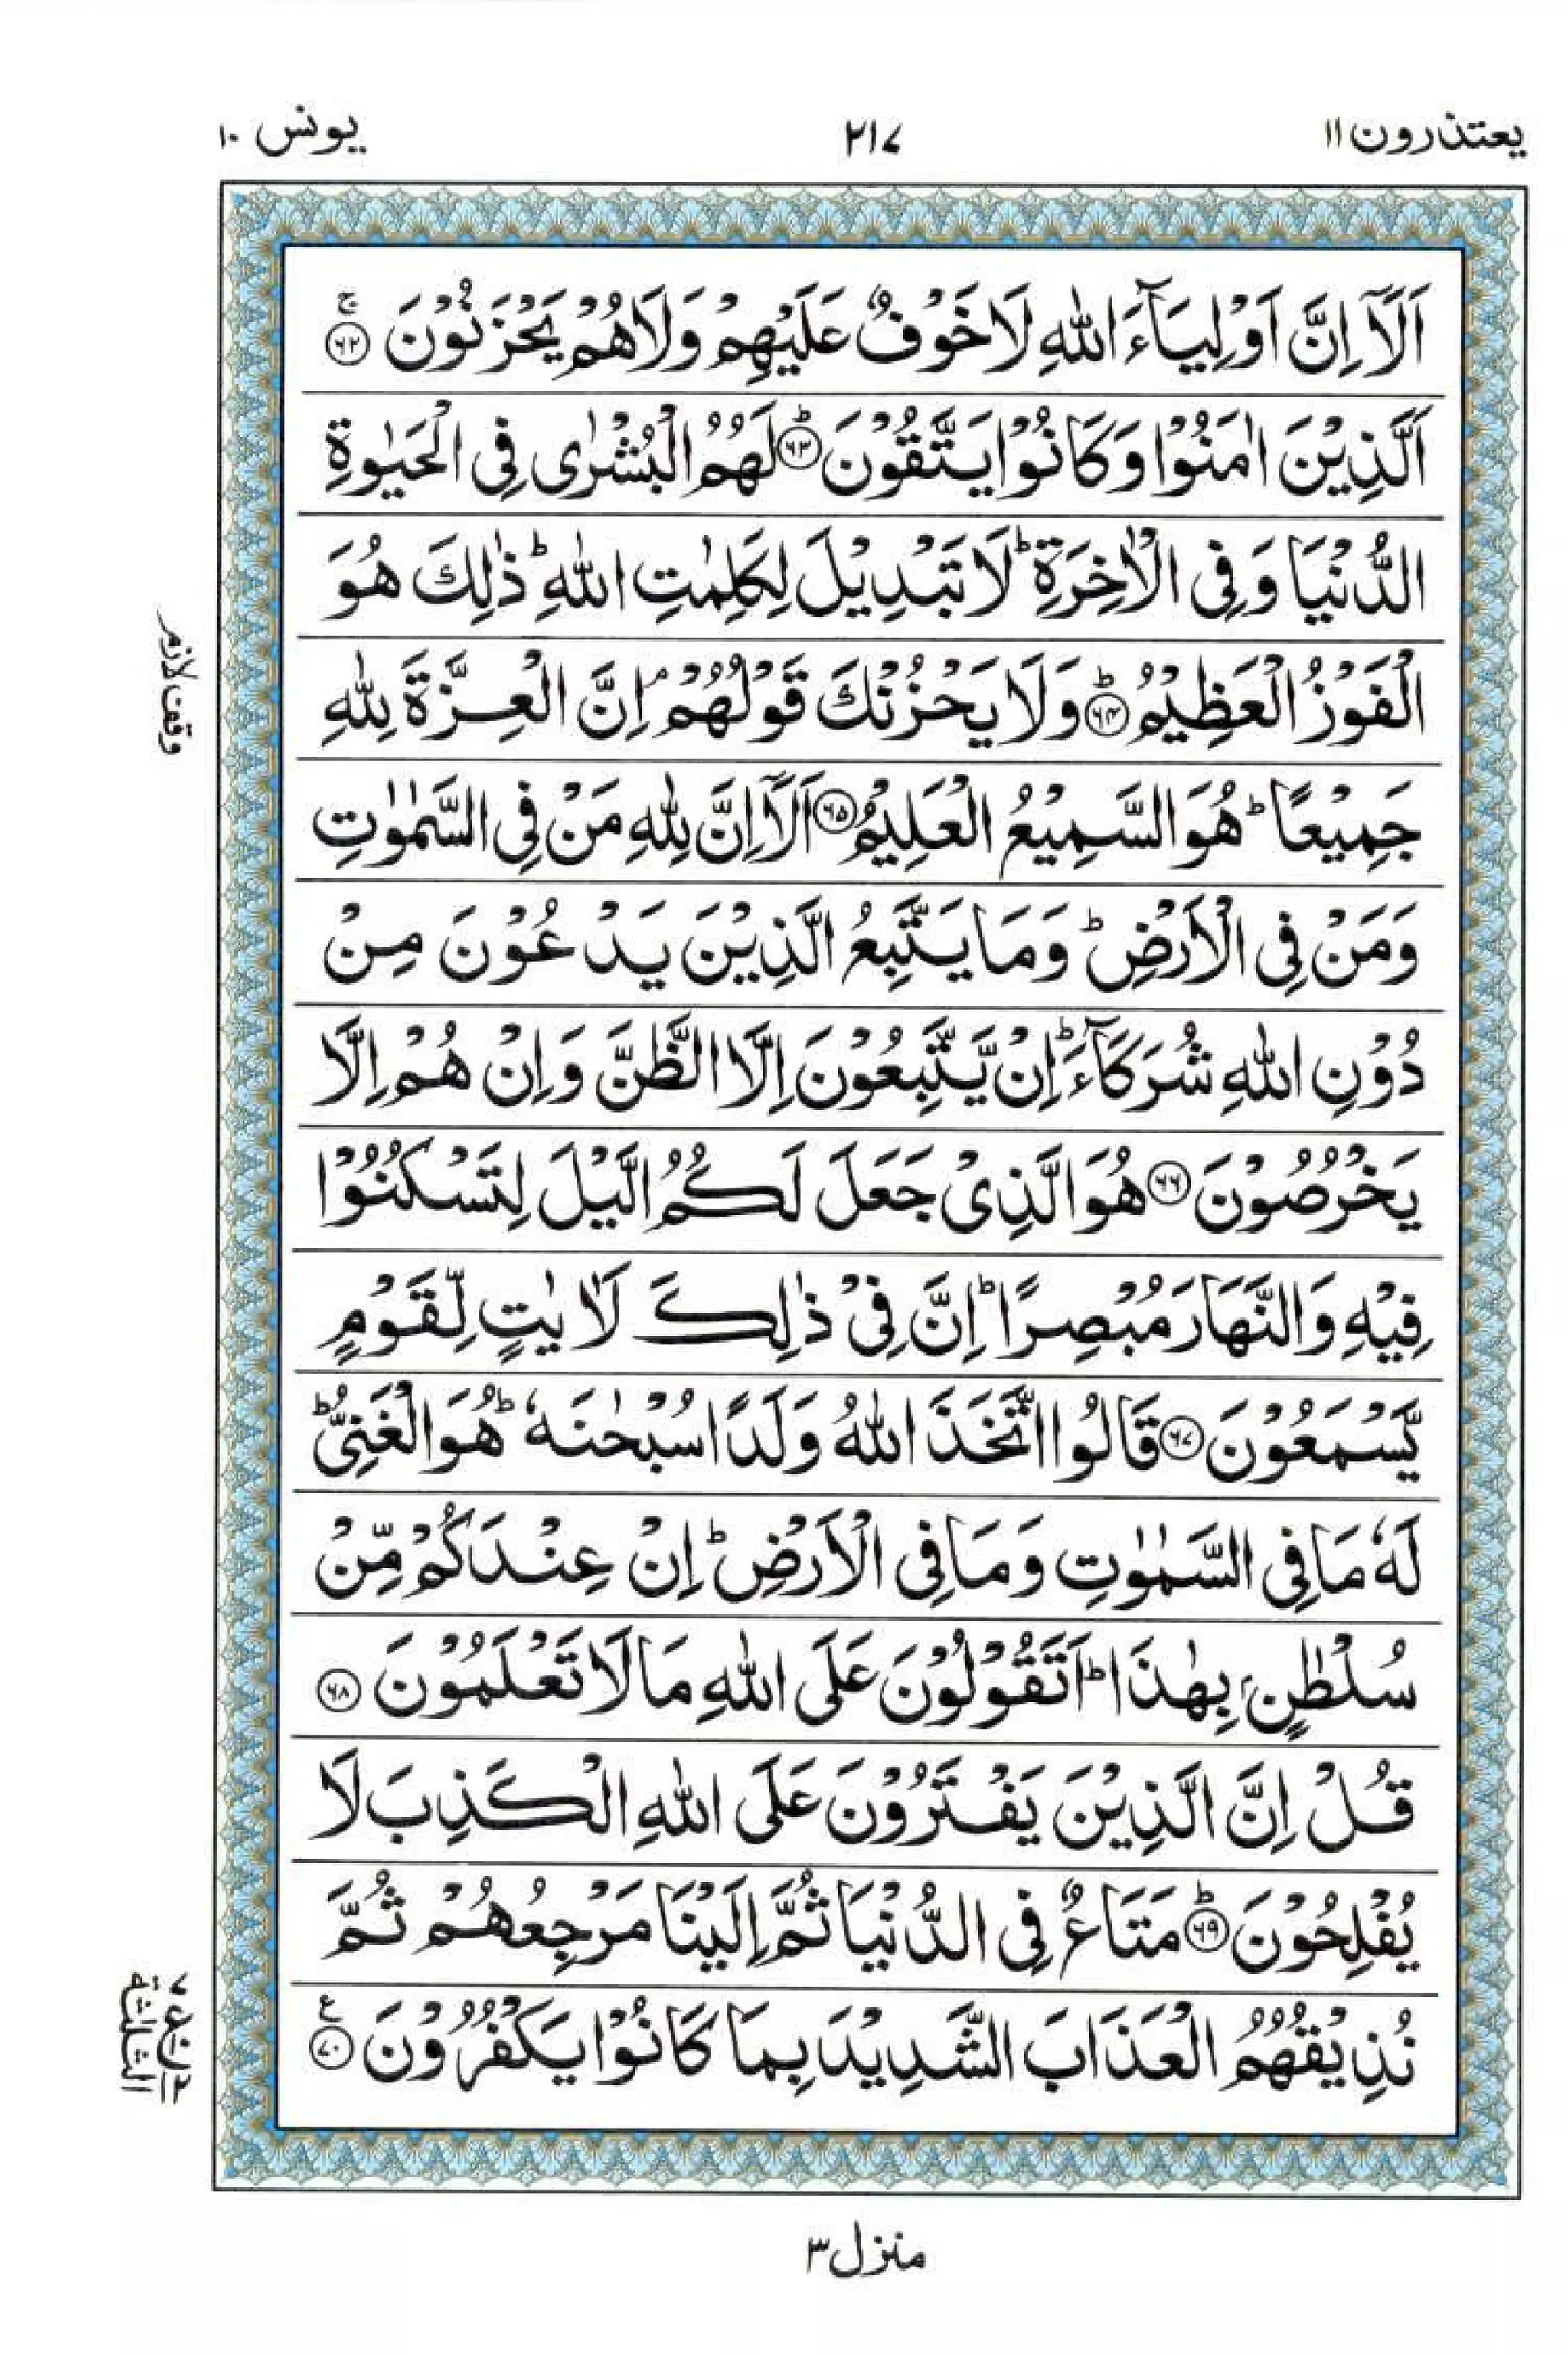 يعتذرون ١١
٢١٧
يونس ١٠
اَلَاۤ اِنَّ اَوْلِيَآءَ اللّٰهِ لَا خَوْفٌ عَلَيْهِمْ وَلَا هُمْ يَحْزَنُوْنَ ۚ‏﴿۶۲﴾
اَلَّذِيْنَ اٰمَنُوْا وَكَانُوْا يَتَّقُوْنَ ؕ‏﴿۶۳﴾ لَهُمُ الْبُشْرٰى فِى الْحَيٰوةِ
الدُّنْيَا وَفِى الْاٰخِرَةِ ؕ لَا تَبْدِيْلَ لِكَلِمٰتِ اللّٰهِ ؕ ذٰلِكَ هُوَ
الْفَوْزُ الْعَظِيْمُ ؕ‏﴿۶۴﴾ وَلَا يَحْزُنْكَ قَوْلُهُمْ ۘ اِنَّ الْعِزَّةَ لِلّٰهِ
جَمِيْعًا ؕ هُوَ السَّمِيْعُ الْعَلِيْمُ ﴿۶۵﴾ اَلَاۤ اِنَّ لِلّٰهِ مَنْ فِى السَّمٰوٰتِ
وَمَنْ فِى الْاَرْضِ ؕ وَمَا يَتَّبِعُ الَّذِيْنَ يَدْعُوْنَ مِنْ
دُوْنِ اللّٰهِ شُرَكَآءَ ؕ اِنْ يَّتَّبِعُوْنَ اِلَّا الظَّنَّ وَاِنْ هُمْ اِلَّا
يَخْرُصُوْنَ ﴿۶۶﴾ هُوَ الَّذِىْ جَعَلَ لَكُمُ الَّيْلَ لِتَسْكُنُوْا
فِيْهِ وَالنَّهَارَ مُبْصِرًا ؕ اِنَّ فِىْ ذٰلِكَ لَاٰيٰتٍ لِّقَوْمٍ
يَّسْمَعُوْنَ ﴿۶۷﴾ قَالُوا اتَّخَذَ اللّٰهُ وَلَدًا سُبْحٰنَهٗ ؕ هُوَ الْغَنِىُّ ؕ
لَهٗ مَا فِى السَّمٰوٰتِ وَمَا فِى الْاَرْضِ ؕ اِنْ عِنْدَكُمْ مِّنْ
سُلْطٰنٍۭ بِهٰذَا ؕ اَتَقُوْلُوْنَ عَلَى اللّٰهِ مَا لَا تَعْلَمُوْنَ ﴿۶۸﴾
قُلْ اِنَّ الَّذِيْنَ يَفْتَرُوْنَ عَلَى اللّٰهِ الْكَذِبَ لَا
يُفْلِحُوْنَ ؕ‏﴿۶۹﴾ مَتَاعٌ فِى الدُّنْيَا ثُمَّ اِلَيْنَا مَرْجِعُهُمْ ثُمَّ
نُذِيْقُهُمُ الْعَذَابَ الشَّدِيْدَ بِمَا كَانُوْا يَكْفُرُوْنَ ﴿۷۰﴾ ع
وقف لازم
الثلٰثة
منزل ٣